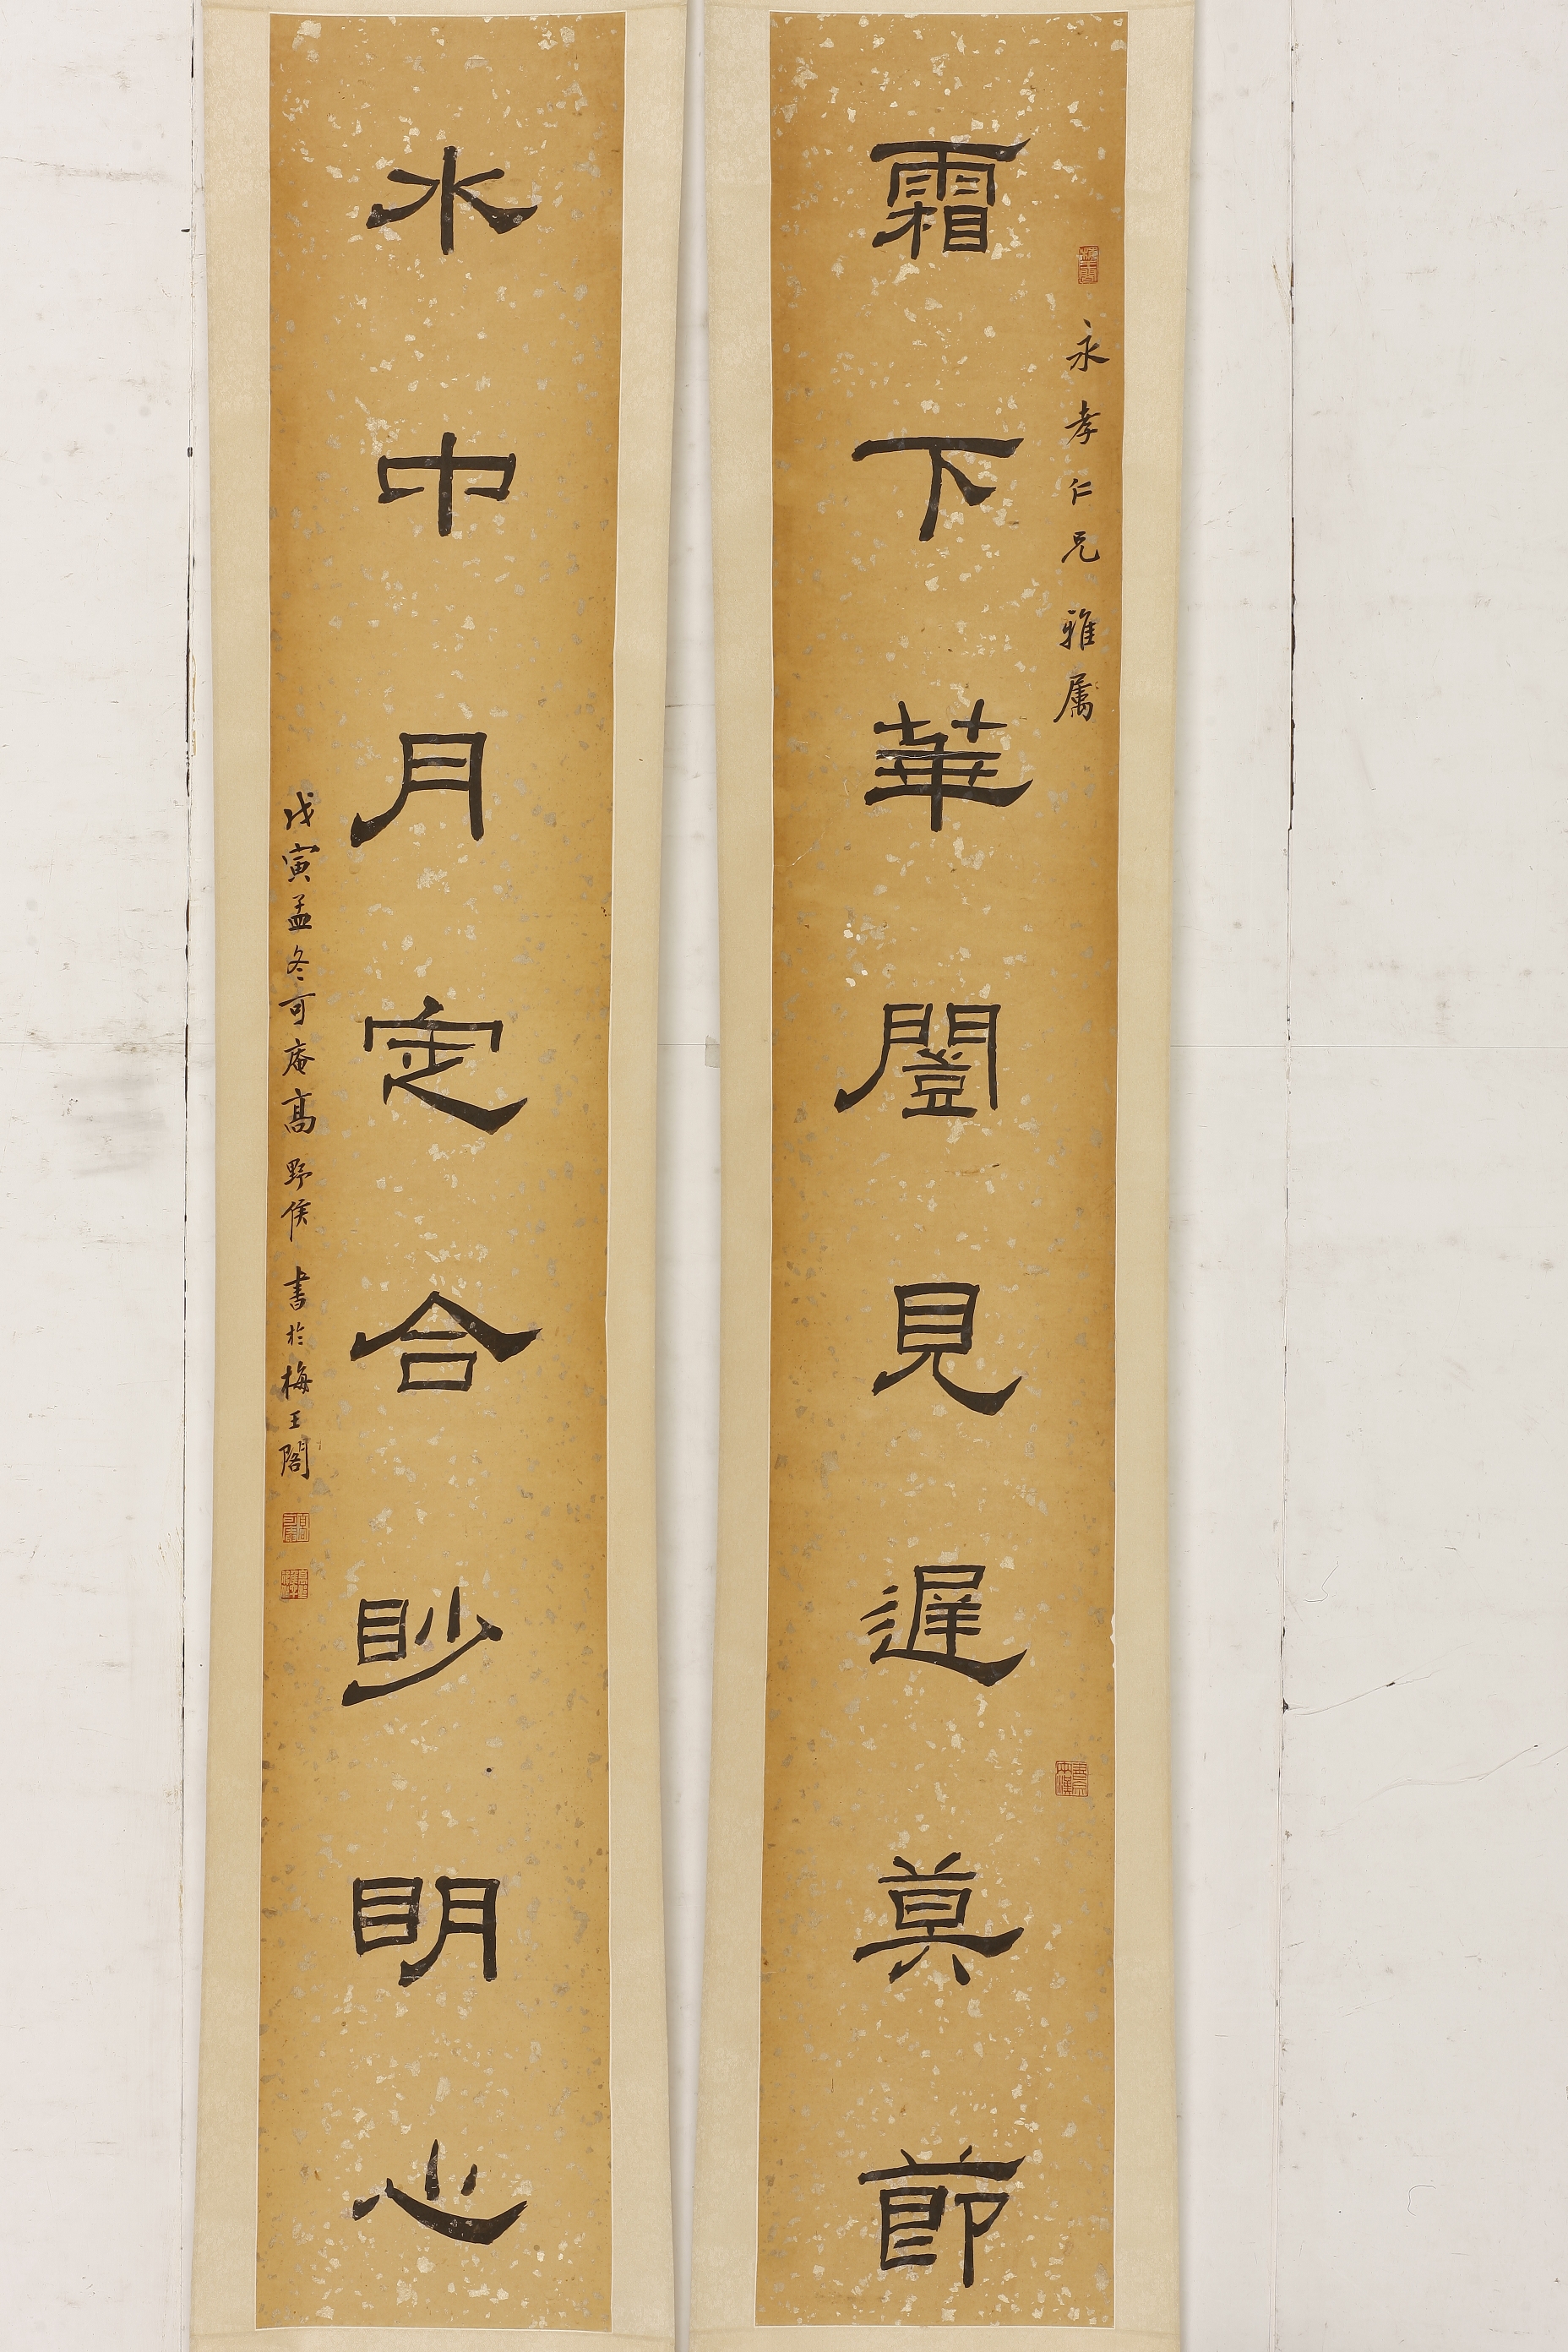 永孝仁兄雅属
霜下華闓見遲莫節
水中月定合眇明心
戊寅孟冬可庵髙野侯書於梅王閣